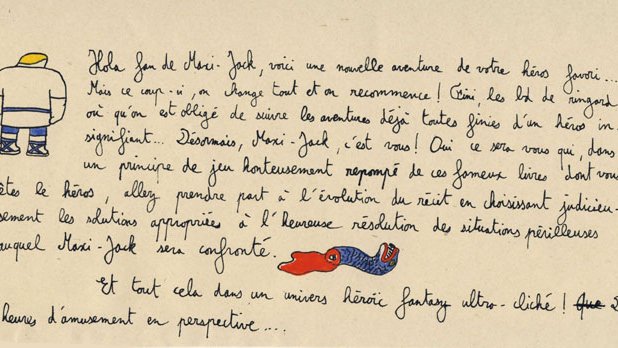 Hola fan de Maxi-Jack, voici une nouvelle aventure de votre héros favori...
Mais ce coup-ci, on change tout et on recommence! Fini, les bd de ringard
où qu'on est obligé de suivre les aventures déjà toutes finies d'un héros in-
signifiant... Désormais, Maxi-Jack, c'est vous! Oui ce sera vous qui, dans
un principe de jeu honteusement repompé de ces fameux livres "dont vous
êtes le héros, allez prendre part à l'évolution du récit en choisissant judicieu-
sement les solutions appropriées à l'heureuse résolution des situations périlleuses
auquel Maxi-Jack sera confronté.
Et tout cela dans un univers héroïc fantasy ultra-cliché! Que 2
heures d'amusement en perspective....